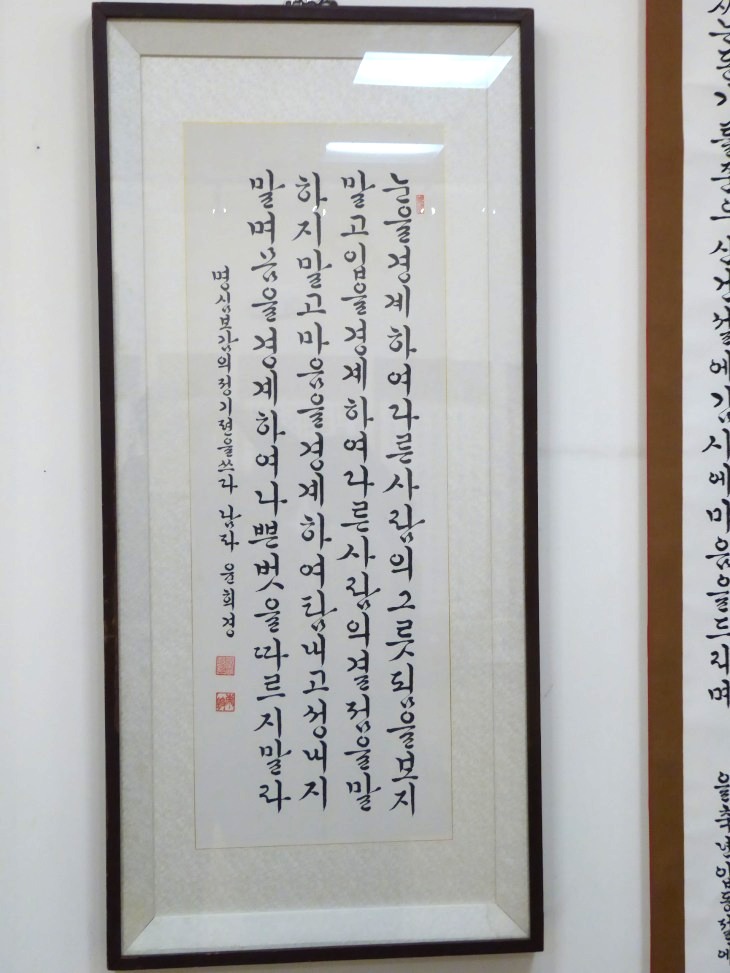 눈을경계하여다른사람의그릇됨을보지
말고입을경계하여다른사람의결점을말
하지말고마음을경계하여탐내고성내지
말며몸을경계하여나쁜벗을따르지말라
명심보감의정기편을쓰다 윤희경
에감사에마음을드리며